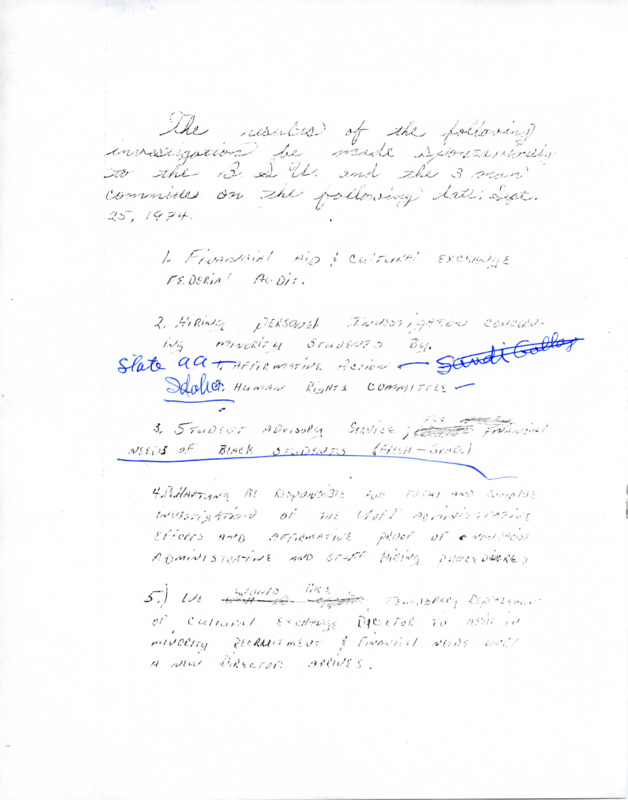 The results of the following
investigation be made spontaneously
to the B.S.U. and the 3 man
committee on the following date: Sept.
25, 1974.
1. FINANCIAL AID & CULTURAL EXCHANGE
FEDERIAL AUDIT.
2. HIRING PERSONEL INVESTIGATION CONCERN-
ING MINORITY STUDENTS BY.
State AA 1. AFFIRMATIVE ACTION — Sandi Gallay
Idaho 2. HUMAN RIGHTS COMMITTEE —
3. STUDENT ADVISORY SERVICE, FINANCIAL
NEEDS OF BLACK STUDENTS (FRESH-GRAD.)
4.) HARTUNG BE RESPONSIBLE FOR TOTAL AND COMPLETE
INVESTIGATION OF THE U of I ADMINISTRATIVE
EFFORTS AND AFFIRMATIVE PROOF OF
ADMINISTRATIVE AND STAFF HIRING PROCEDURES
5.) WE WOULD LIKE TEMPORARY REPLACEMENT
OF CULTURAL EXCHANGE DIRECTOR TO ASSIST IN
MINORITY RECRUITMENT & FINANCIAL NEEDS UNTIL
A NEW DIRECTOR ARRIVES.